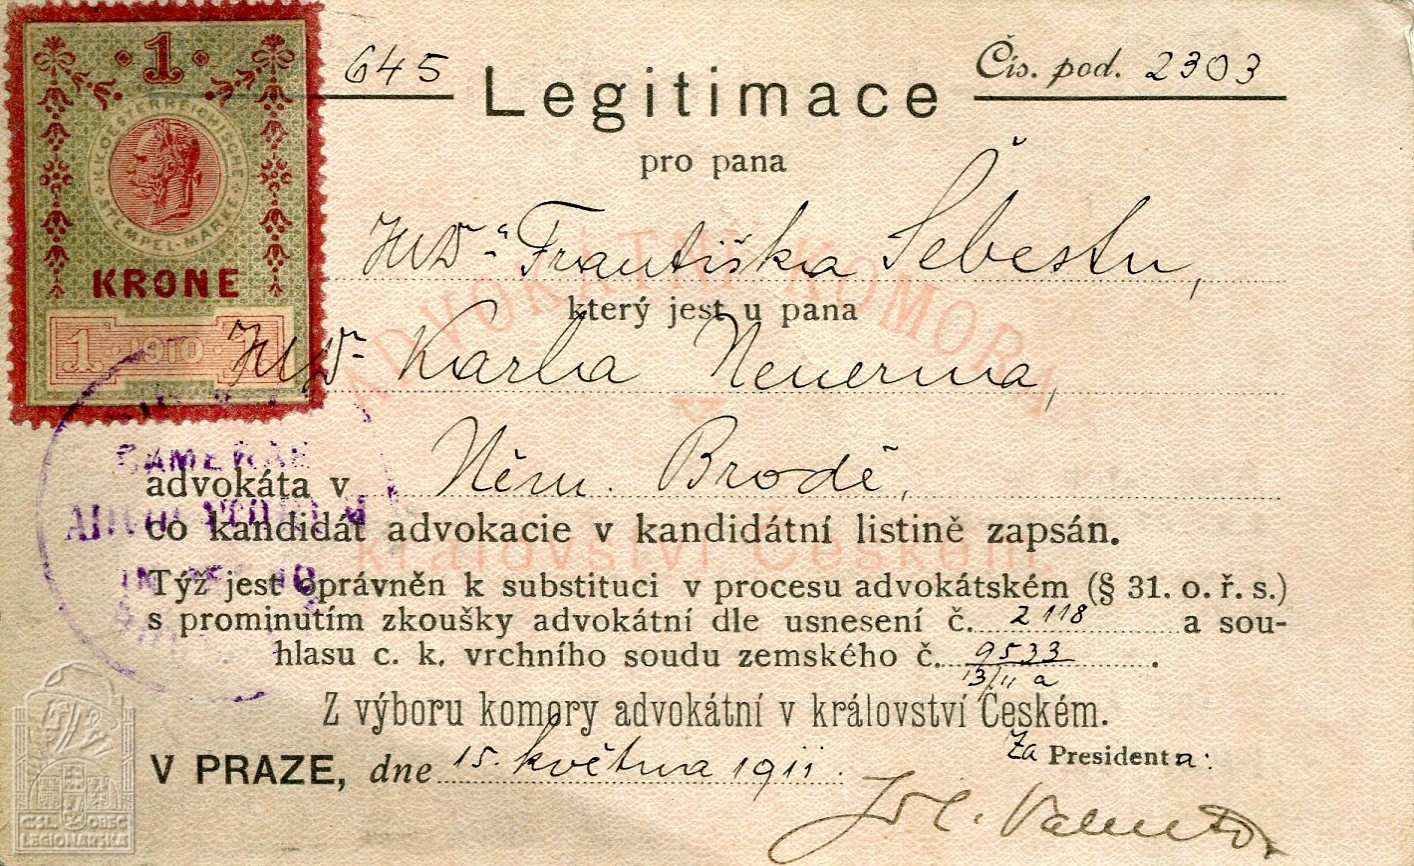 645 Legitimace Čís. pod. 2303
pro pana
JUDra Františka Šebestu,
který jest u pana
JUDr Karla Neuerma,
advokáta v Něm. Brodě,
co kandidát advokacie v kandidátní listině zapsán.
Týž jest oprávněn k substituci v procesu advokátském (§ 31. o. ř. s.)
s prominutím zkoušky advokátní dle usnesení č. 2118 a sou-
hlasu c. k. vrchního soudu zemského č. 9533
13/11 a
Z výboru komory advokátní v království Českém.
V PRAZE, dne 15. května 1911.
Za Presidenta:
1
K.K. OESTERREICHISCHE
STEMPEL-MARKE
KRONE
1 1910
ADVOKÁTNÍ KOMORA
V
království Českém.
CAMERAE
ADVOCATORUM
ČSL. OBEC
LEGIONÁŘSKÁ